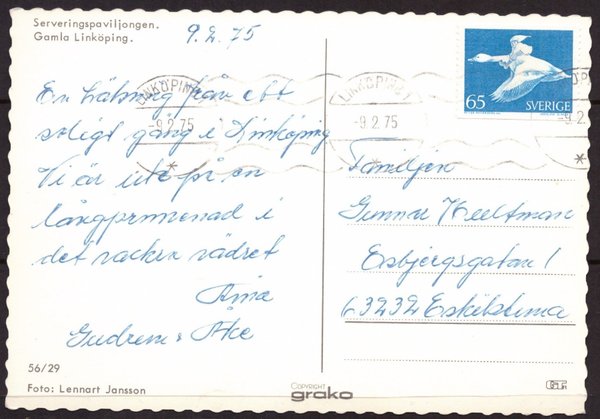 Serveringspaviljongen.
Gamla Linköping.
9.2.75
En hälsning från ett
soligt gång i Linköping
Vi är ute på en
långpromenad i
det vackra vädret
Gudrun & Åke
56/29
Foto: Lennart Jansson
COPYRIGHT
grako
65 SVERIGE
LINKÖPING 1
-9.2.75
LINKÖPING 1
-9.2.75
Familjen
Gunnar
Esbjergsgatan 1
63232 Eskilstuna